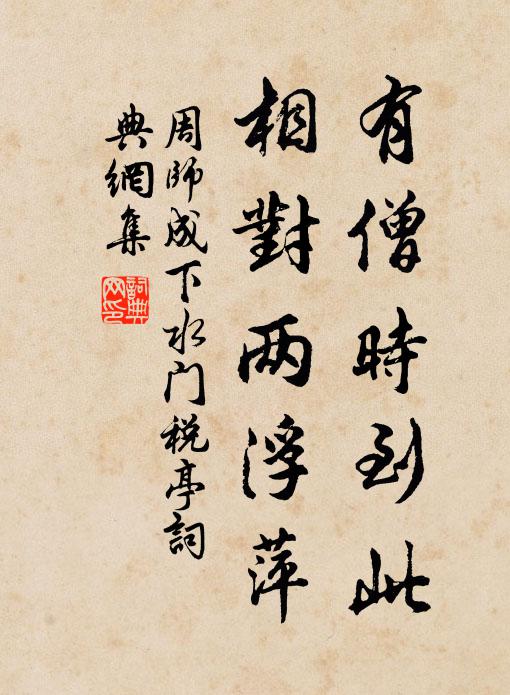 有僧時到此
相對两浮萍
周師成下水门税亭詞
典網集
詞典
网印